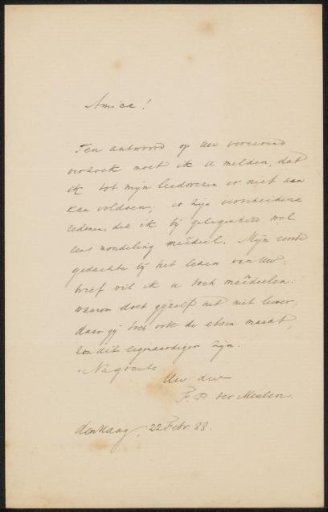 Amice!
Ten antwoord op uw vereerend
verzoek moet ik u melden, dat
ik tot mijn leedwezen er niet aan
kan voldoen, er zijn verscheidene
redenen, die ik bij gelegenheid wel
eens mondeling meedeel. Mijn eerste
gedachte bij het lezen van Uw
brief wil ik u toch meêdeelen.
waarom doet gijzelf het niet liever,
daar gij toch ook de etsen maakt,
Zou dit eigenaardiger zijn.
Na groete
Uw dw
F. P. ter Meulen.
den Haag, 22 Febr. 88.